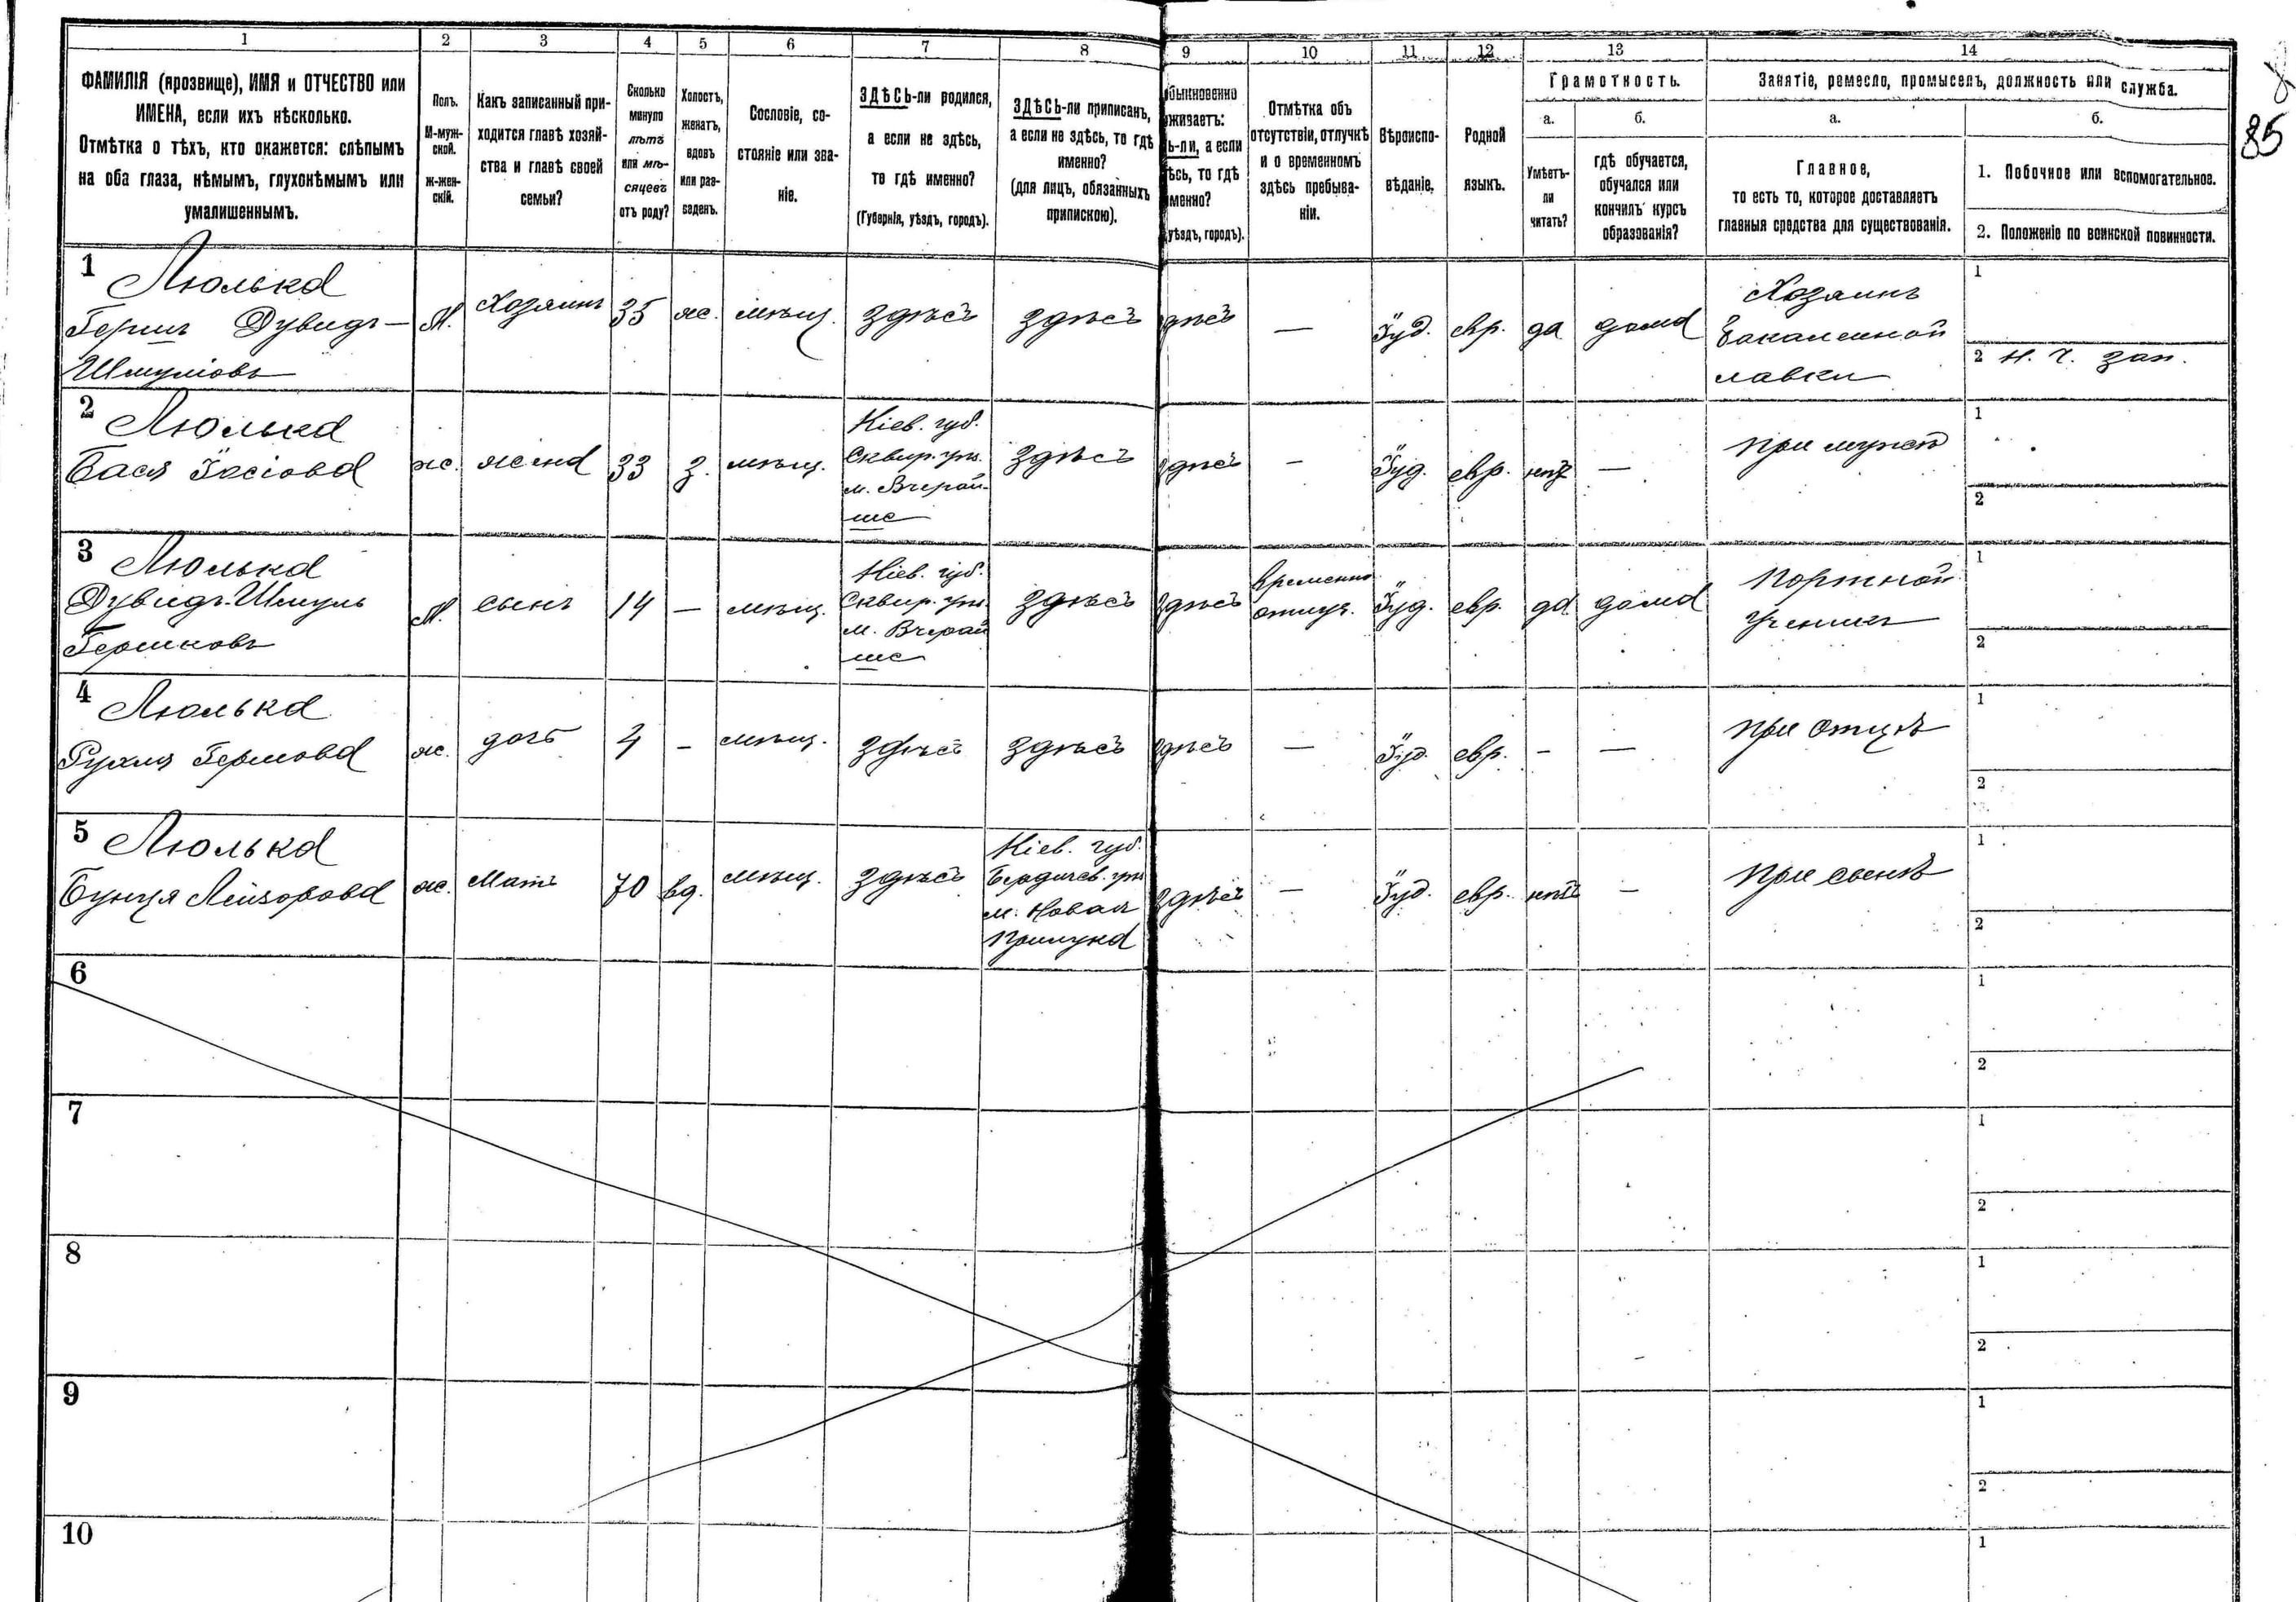 1 2 3 4 5 6 7 8 9 10 11 12 13 14
85
ФАМИЛІЯ (прозвище), ИМЯ и ОТЧЕСТВО или
ИМЕНА, если ихъ нѣсколько.
Отмѣтка о тѣхъ, кто окажется: слѣпымъ
на оба глаза, нѣмымъ, глухонѣмымъ или
умалишеннымъ.
Полъ.
М-муж-
ской.
ж-жен-
скій.
Какъ записанный при-
ходится главѣ хозяй-
ства и главѣ своей
семьи?
Сколько
минуло
лѣтъ
или мѣ-
сяцевъ
отъ роду?
Холостъ,
женатъ,
вдовъ
или раз-
веденъ.
Сословіе, со-
стояніе или зва-
ніе.
ЗДѢСЬ-ли родился,
а если не здѣсь,
то гдѣ именно?
(Губернія, уѣздъ, городъ).
ЗДѢСЬ-ли приписанъ,
а если не здѣсь, то гдѣ
именно?
(для лицъ, обязанныхъ
припискою).
быкновенно
живаетъ:
ь-ли, а если
ѣсь, то гдѣ
менно?
уѣздъ, городъ).
Отмѣтка объ
отсутствіи, отлучкѣ
и о временномъ
здѣсь пребыва-
ніи.
Вѣроиспо-
вѣданіе.
Родной
языкъ.
Грамотность.
а.
Умѣетъ-
ли
читать?
б.
гдѣ обучается,
обучался или
кончилъ курсъ
образованія?
Занятіе, ремесло, промыселъ, должность или служба.
а.
Главное,
то есть то, которое доставляетъ
главныя средства для существованія.
б.
1. Побочное или вспомогательное.
2. Положеніе по воинской повинности.
1 Люлька
Герш Дувидъ-
Шмуліовъ
М.
Хозяинъ
35
ж.
мѣщ.
здѣсь
здѣсь
здѣсь
—
Іуд.
евр.
да
дома
Хозяинъ
бакалейной
лавки
1
2 н. ч. зап.
2 Люлька
Бася Іосіова
ж.
жена
33
з.
мѣщ.
Кіев. губ.
Сквир. у.
м. Вчерай-
ше
здѣсь
здѣсь
—
Іуд.
евр.
нѣтъ
—
при мужѣ
1
2
3 Люлька
Дувидъ-Шмуль
Гершковъ
М.
сынъ
14
—
мѣщ.
Кіев. губ.
Сквир. у.
м. Вчерай
ше
здѣсь
здѣсь
временно
отлуч.
Іуд.
евр.
да
дома
портной
ученикъ
1
2
4 Люлька
Рухля Гершова
ж.
дочь
—
мѣщ.
здѣсь
здѣсь
здѣсь
—
Іуд.
евр.
—
—
при отцѣ
1
2
5 Люлька
Бунця Лейзорова
ж.
Мать
70
вд.
мѣщ.
здѣсь
Кіев. губ.
Бердичев. у.
м. Новая
Прилука
здѣсь
—
Іуд.
евр.
нѣтъ
—
при сынѣ
1
2
6
1
2
7
1
2
8
1
2
9
1
2
10
1